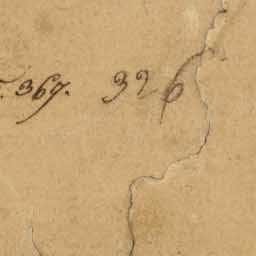 . 367. 326